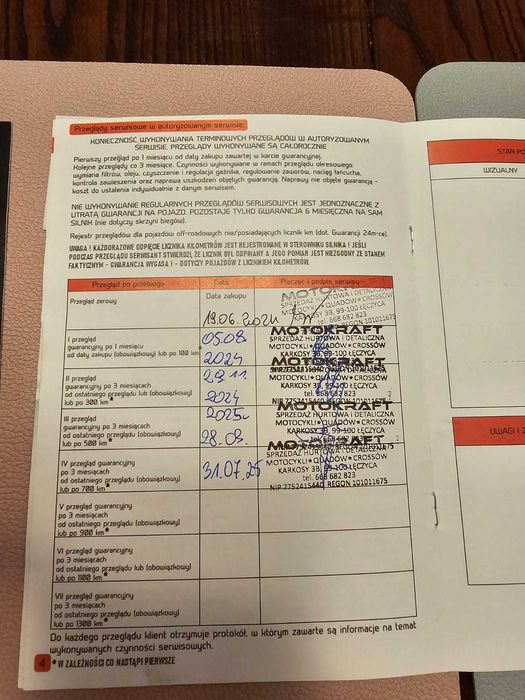 Przeglądy serwisowe w autoryzowanym serwisie:
KONIECZNOŚĆ WYKONYWANIA TERMINOWYCH PRZEGLĄDÓW W AUTORYZOWANYM
SERWISIE. PRZEGLĄDY WYKONYWANE SĄ CAŁOROCZNIE
Pierwszy przegląd po 1 miesiącu od daty zakupu zawartej w karcie gwarancyjnej.
Kolejne przeglądy co 3 miesiące. Czynności wykonywane w ramach przeglądu okresowego:
wymiana filtrów, oleju, czyszczenie i regulacja gaźnika, regulowanie zaworów, naciąg łańcucha,
kontrola zawieszenia oraz naprawa uszkodzeń objętych gwarancją. Naprawy nie objęte gwarancją -
koszt do ustalenia indywidualnie z danym serwisem.
NIE WYKONYWANIE REGULARNYCH PRZEGLĄDÓW SERWISOWYCH JEST JEDNOZNACZNE Z
UTRATĄ GWARANCJI NA POJAZD. POZOSTAJE TYLKO GWARANCJA 6 MIESIĘCZNA NA SAM
SILNIK (nie dotyczy skrzyni biegów).
Rejestr przeglądów dla pojazdów off-roadowych nie/posiadających licznik km (dot. Gwarancji 24m-ce).
UWAGA ! KAŻDORAZOWE ODPIĘCIE LICZNIKA KILOMETRÓW JEST REJESTROWANE W STEROWNIKU SILNIKA ! JEŚLI
PODCZAS PRZEGLĄDU SERWISANT STWIERDZI, ŻE LICZNIK BYŁ ODPINANY A JEGO POMIAR JEST NIEZGODNY ZE STANEM
FAKTYCZNYM - GWARANCJA WYGASA ! - DOTYCZY POJAZDÓW Z LICZNIKIEM KILOMETRÓW.
Przegląd po przebiegu Data Pieczęć i podpis serwisu
Przegląd zerowy Data zakupu
19.06.2024
MOTOKRAFT
SPRZEDAŻ HURTOWA I DETALICZNA
MOTOCYKLI★QUADÓW★CROSSÓW
KARKOSY 3B, 99-100 ŁĘCZYCA
tel. 668 682 823
I przegląd
gwarancyjny po 1 miesiącu
od daty zakupu (obowiązkowy) lub po 100 km*
05.08
2024
MOTOKRAFT
SPRZEDAŻ HURTOWA I DETALICZNA
MOTOCYKLI★QUADÓW★CROSSÓW
KARKOSY 3B, 99-100 ŁĘCZYCA
II przegląd
gwarancyjny po 3 miesiącach
od ostatniego przeglądu (obowiązkowy)
lub po 300 km*
29.11.
2024
SPRZEDAŻ HURTOWA I DETALICZNA
MOTOCYKLI★QUADÓW★CROSSÓW
KARKOSY 3B, 99-100 ŁĘCZYCA
tel. 668 682 823
NIP 7752415440 REGON 101011675
III przegląd
gwarancyjny po 3 miesiącach
od ostatniego przeglądu (obowiązkowy)
lub po 500 km*
2025r
28.03.
MOTOKRAFT
SPRZEDAŻ HURTOWA I DETALICZNA
MOTOCYKLI★QUADÓW★CROSSÓW
KARKOSY 3B, 99-100 ŁĘCZYCA
IV przegląd gwarancyjny
po 3 miesiącach
od ostatniego przeglądu (obowiązkowy)
lub po 700 km*
31.07.25
MOTOKRAFT
SPRZEDAŻ HURTOWA I DETALICZNA
MOTOCYKLI★QUADÓW★CROSSÓW
KARKOSY 3B, 99-100 ŁĘCZYCA
tel. 668 682 823
NIP 7752415440 REGON 101011675
V przegląd gwarancyjny
po 3 miesiącach
od ostatniego przeglądu (obowiązkowy)
lub po 900 km*
VI przegląd gwarancyjny
po 3 miesiącach
od ostatniego przeglądu lub (obowiązkowy)
lub po 1100 km*
VII przegląd gwarancyjny
po 3 miesiącach
od ostatniego przeglądu (obowiązkowy)
lub po 1300 km*
Do każdego przeglądu klient otrzymuje protokół, w którym zawarte są informacje na temat
wykonywanych czynności serwisowych.
4 * W ZALEŻNOŚCI CO NASTĄPI PIERWSZE
STAN PO
WIZUALNY
UWAGI I Z